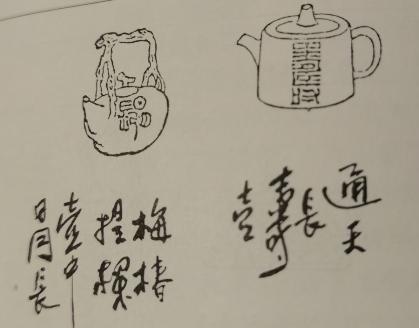 通天
長
壽
壺
梅椿
提樑
壺中
日月長